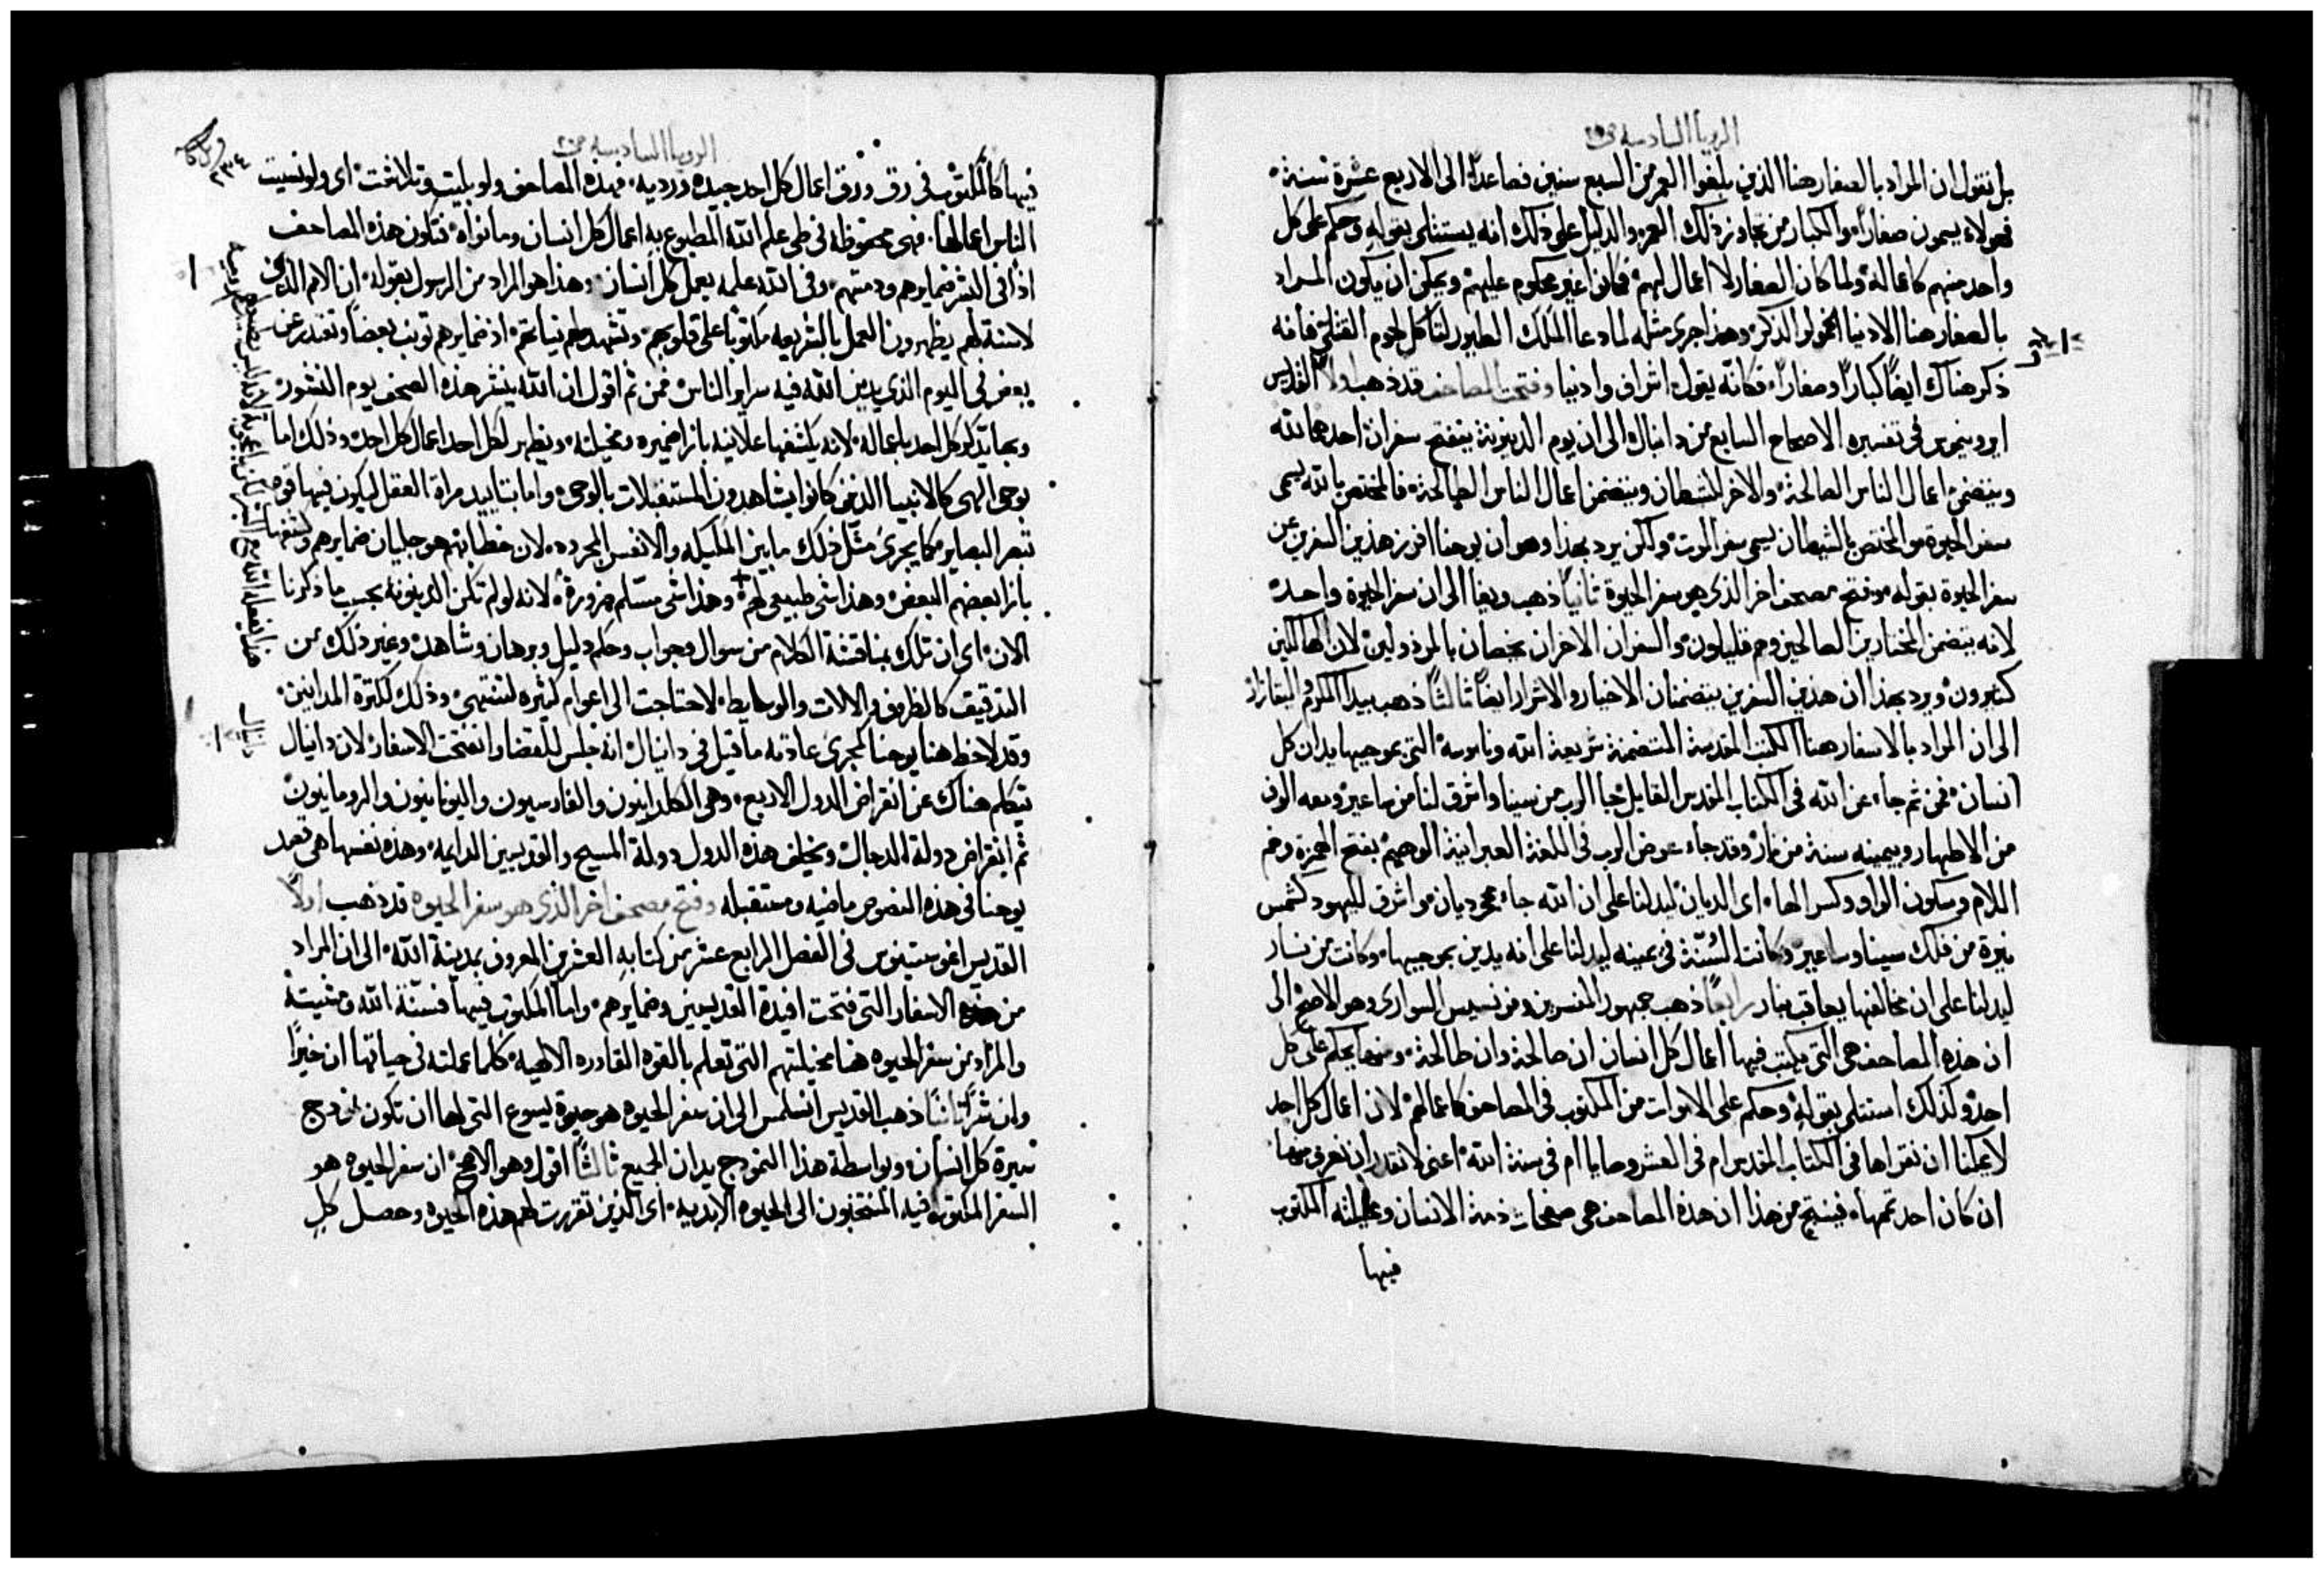 الرويا السادسه ص٢٠
بل نقول ان المراد بالصغار هنا الذين بلغوا العمر من السبع سنين فصاعدًا الى الاربع عشرة سنة
فهولاء يسمون صغارًا والكبار من تجاوز ذلك العمر والدليل على ذلك انه يستتلى بقوله وحكم على كل
واحد منهم كاعماله ولما كان الصغار لا اعمال لهم فكانوا غير محكوم عليهم ويمكن ان يكون المراد
بالصغار هنا الادنيا الخمولو الذكر وهذا جرى مثله لما دعا الملك الطيور لتاكل لحوم القتلى فانه
ذكر هناك ايضًا كبارًا وصغارًا فكانه يقول اشراف وادنيا وفتحت المصاحف قد ذهب اولًا القديس
ايرونيموس في تفسيره الاصحاح السابع من دانيال الى ان يوم الدينونة ينفتح سفران احدهما لله
ويتضمن اعمال الناس الصالحة والاخر للشيطان ويتضمن اعمال الناس الطالحة فالمختص بالله يسمى
سفر الحيوة والمختص بالشيطان يسمى سفر الموت ولكن يرد بهذا وهو ان يوحنا افرز هذين السفرين عن
سفر الحيوة بقوله وفتح مصحف اخر الذي هو سفر الحيوة ثانيًا ذهب وبغا الى ان سفر الحيوة واحده
لانه يتضمن المختارين الصالحين وهم قليلون والسفران الاخران يختصان بالمرذولين لان الهالكين
كثيرون ويرد بهذا ان هذين السفرين يتضمنان الاخيار والاشرار ايضًا ثالثًا ذهب بيدا المكرم
الى ان المراد بالاسفار هنا الكتب المقدسة المتضمنة شريعة الله وناموسه التي بموجبها يدان كل
انسان فمن ثم جاء عن الله في الكتاب المقدس القايل جا الرب من سينا واشرق لنا من ساعير ومعه الوف
من الاطهار وبيمينه سنة من نار وقد جاء عوض الرب في اللغة العبرانية الوهيم بفتح الهمزة وضم
اللام وسكون الواو وكسر الهاء اى الديان ليدلنا على ان الله جاء مجرد ديان واشرق لليهود كشمس
نيرة من فلك سينا وساعير وكانت السُنّة في يمينه ليدلنا على انه يدين بموجبها وكانت من نار
ليدلنا على ان مخالفها يعاقب بنار رابعًا ذهب جمهور المفسرين وفرنسيس السوارى وهو الاصح الى
ان هذه المصاحف هي التي يكتب فيها اعمال كل انسان ان صالحة وان طالحة ومنها يحكم على كل
احد ولذلك استتلى بقوله وحكم على الاموات من المكتوب في المصاحف كاعمالهم لان اعمال كل احد
لا يمكننا ان نقراها في الكتاب المقدس ام في العشر وصايا ام في سنة الله اعنى لا نقدر ان نعرف منها
ان كان احد تممها فينتج من هذا ان هذه المصاحف هي صفحات ذمة الانسان ومخيلته المكتوب
فيها
الرويا السادسه ص٢٠
فيها كالمكتوب في رق ورق اعمال كل احد جيده ورديه فهذه المصاحف ولو بليت وتلاشت اى ولو نسيت
الناس اعمالها فهى محفوظة في طى علم الله المطبوع به اعمال كل انسان وما نواه فتكون هذه المصاحف
اذًا في البشر ضمايرهم وذمتهم وفي الله علمه بعمل كل انسان وهذا هو المراد من الرسول بقوله ان الامم الذين
لا سنة لهم يظهرون العمل بالشريعه مكتوبًا على قلوبهم وتشهد لهم نياتهم اذ ضمايرهم توبب بعضًا وتعتذر عن
بعض في اليوم الذي يدين الله فيه سراير الناس فمن ثم اقول ان الله ينشر هذه الصحف يوم النشور
وبها يذكر كل احد باعماله لانه يكشفها علانيه بازا ضميره ومخيلته ويظهر لكل احد اعمال كل احد وذلك اما
بوحى الهى كالانبيا الذين كانوا يشاهدون المستقبلات بالوحى واما بتاييد مراة العقل ليكون فيها قوه
تبصر البصاير كما يجرى مثل ذلك ما بين المليكه والانفس المجرده لان خطابهم هو جليان ضمايرهم وكشفها
بازا بعضهم البعض وهذا شى طبيعى لهم + وهذا شى مسلم ضرورة لانه لو لم تكن الدينونه بحسب ما ذكرنا
الان اى ان تلك بمناقشة الكلام من سوال وجواب وحكم ودليل وبرهان وشاهد وغير ذلك من
التدقيق كالظروف والالات والوسايط لاحتاجت الى اعوام كثيره لتنتهي وذلك لكثرة المدانين
وقد لاحظ هنا يوحنا كمجرى عادته ما قيل في دانيال انه جلس للقضا وانفتحت الاسفار لان دانيال
يتكلم هناك عن انقراض الدول الاربع وهى الكلدانيون والفارسيون واليونانيون والرومانيون
ثم انقراض دولة الدجال ويخلف هذه الدول دولة المسيح والقديسين الدايمه وهذه نفسها هي تعمد
يوحنا في هذه النصوص ماضيه ومستقبله وفتح مصحف اخر الذي هو سفر الحيوه قد ذهب اولًا
القديس اغوستينوس في الفصل الرابع عشر من كتابه العشرين المعروف بمدينة الله الى ان المراد
من الاسفار التي فتحت افيدة القديسين وضمايرهم واما المكتوب فيها فسنّة الله ومشيته
والمراد من سفر الحيوه هنا مخيلتهم التي تعلم بالقوه القادره الالهيه كلما عملته في حياتها ان خيرًا
وان شرًا ثانيًا ذهب القديس انسلمس الى ان سفر الحيوه هو حيوة يسوع التي لها ان تكون نموذج
سيرة كل انسان وبواسطة هذا النموذج يدان الجميع ثالثًا اقول وهو الاصح ان سفر الحيوه هو
السفر المكتوب فيه المنتخبون الى الحيوه الابديه اى الذين تقررت لهم هذه الحيوه وحصل كل
دانيال